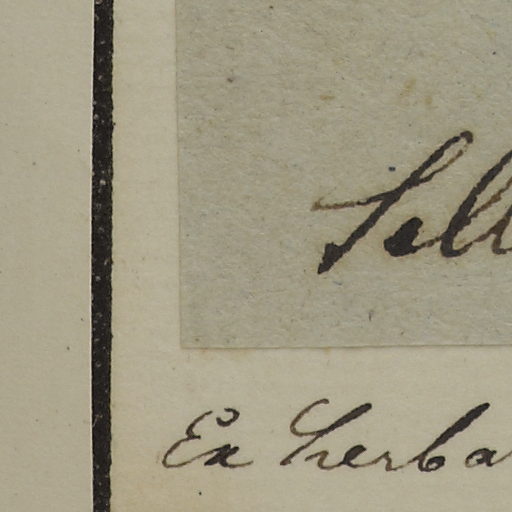 Sell
Ex herba